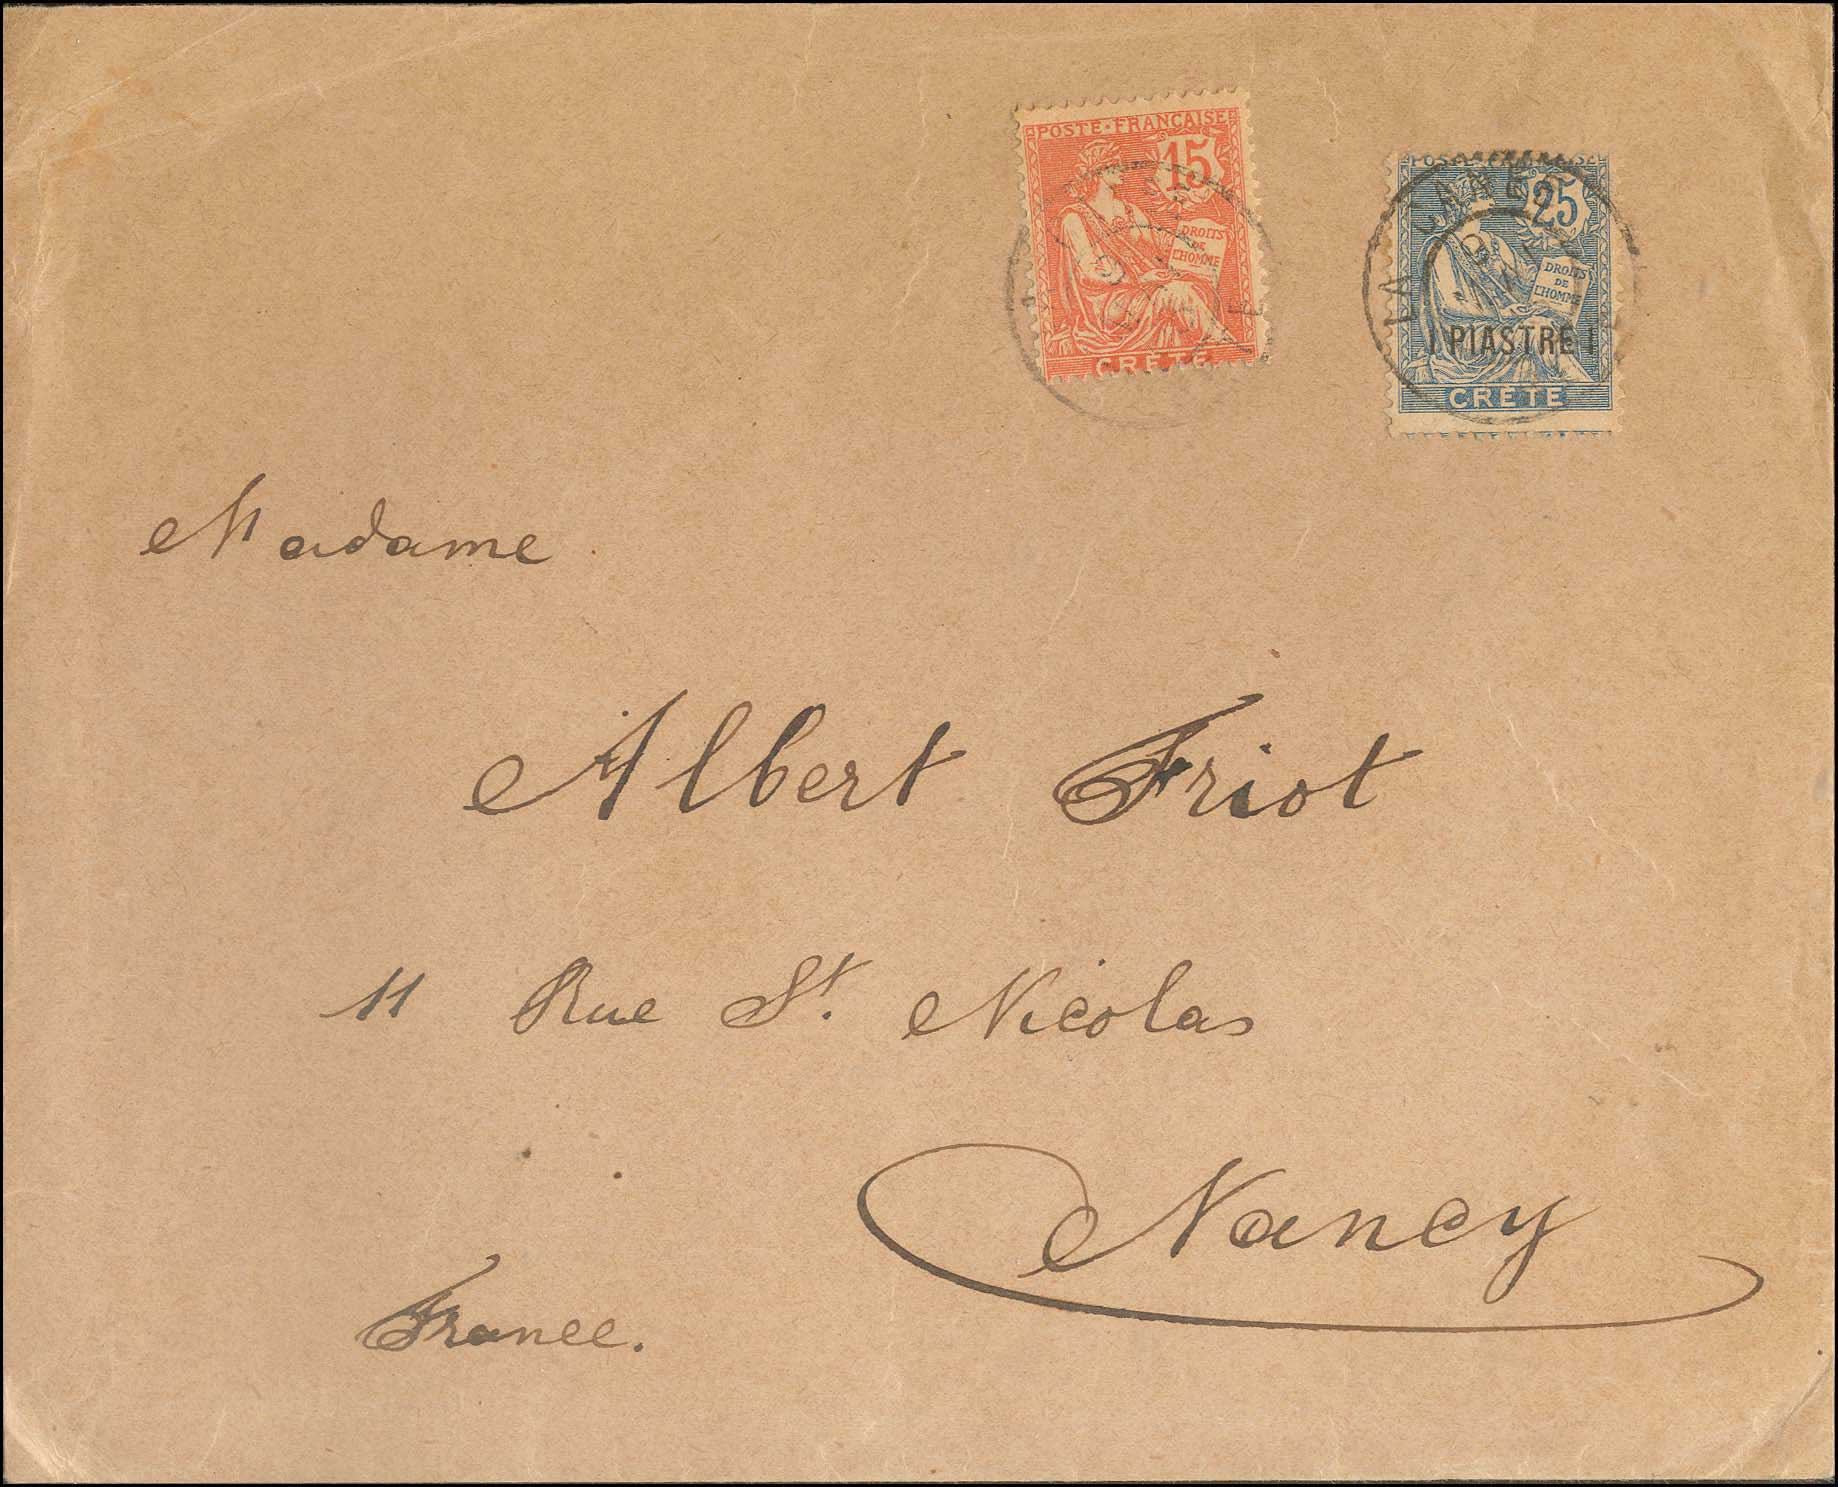 POSTE FRANÇAISE
15
DROITS
DE
L'HOMME
CRÈTE
POSTE FRANÇAISE
25
DROITS
DE
L'HOMME
1 PIASTRE 1
CRÈTE
LA CANÉE
Madame
Albert Friot
11 Rue St. Nicolas
Nancy
France.